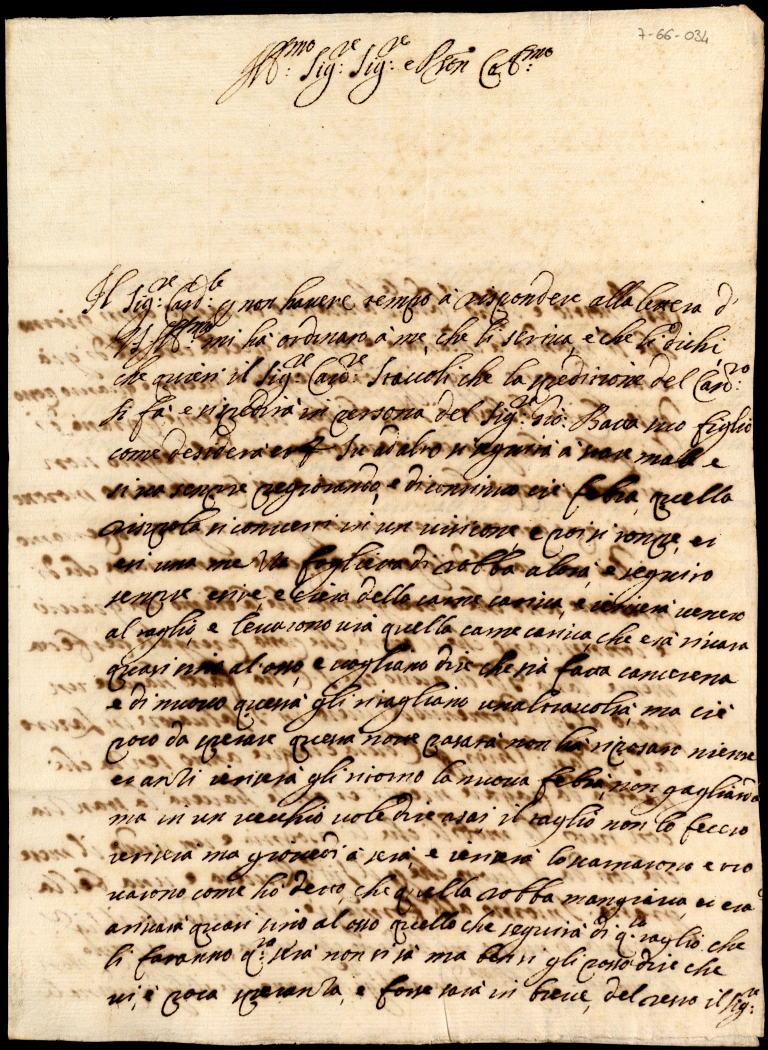 7-66-034
Ill:mo Sig:re Sig:re e Pron Col:mo
Il Sig:re Card:le p non havere tempo à rispondere alla lettera d'
V. S. Ill:ma mi hà ordinato à me, che li scriva, e che li dichi
che questi il Sig:re Card:le Staccoli che la spedizione del
si fà e spedirà in persona del Sig:re Gio: Batta suo figlio
come desidera Su Ecc. altro seguita à star male e
si va sempre peggiorando, e di continuo vi è febra, quella
risipola si converti in un viscicone, e poi si roppe, ei
eri una mezza fogliera di robba alora, e seguiro
sempre erire, e ciera della carne cattiva, e iersera venero
al taglio, e levarono via quella carne cattiva, che era rivata
quasi sino al osso, e vogliano dire che sia fatta cancerena
e di nuovo questa gli ritagliano unaltra volta, ma ci è
poco da sperare questa notte pasata non hà riposato niente
ei anzi iersera gli ritorno la nuova febra non gagliarda
ma in un vecchio vole dire asai il taglio non lo feccio
iersera ma giovedi à sera, e iersera lo e tro
varono come hò detto, che quella robba mangiava, ei era
arivata quasi sino al osso quello che seguirà di q:to taglio che
li faranno q:ta sera non si sà ma bensi gli posso dire che
vi, è poca speranza, e forse sarà in breve, del resto il Sig:re